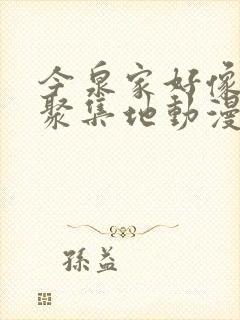 今泉家好像
聚集地動漫
孫益